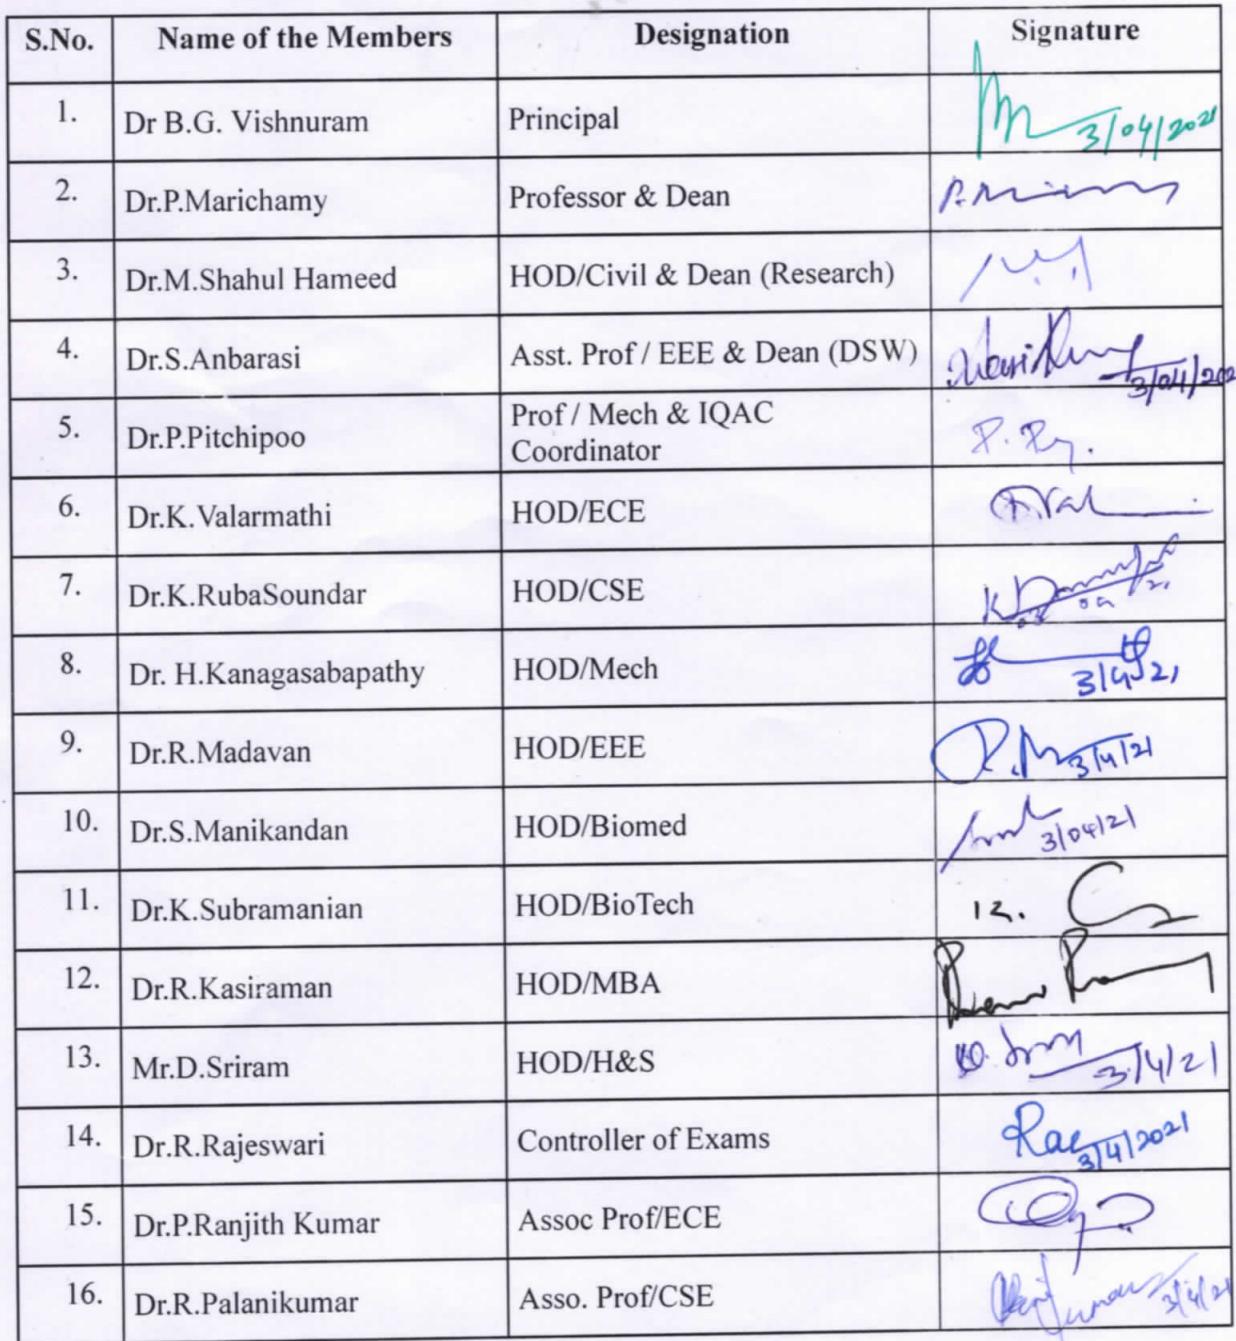 S.No. Name of the Members Designation Signature
1. Dr B.G. Vishnuram Principal 3/04/2021
2. Dr.P.Marichamy Professor & Dean
3. Dr.M.Shahul Hameed HOD/Civil & Dean (Research)
4. Dr.S.Anbarasi Asst. Prof / EEE & Dean (DSW) 3/04/202
5. Dr.P.Pitchipoo Prof / Mech & IQAC
Coordinator P.
6. Dr.K.Valarmathi HOD/ECE
7. Dr.K.RubaSoundar HOD/CSE
8. Dr. H.Kanagasabapathy HOD/Mech 3/4/21
9. Dr.R.Madavan HOD/EEE 3/4/21
10. Dr.S.Manikandan HOD/Biomed 3/04/21
11. Dr.K.Subramanian HOD/BioTech
12. Dr.R.Kasiraman HOD/MBA
13. Mr.D.Sriram HOD/H&S 3/4/21
14. Dr.R.Rajeswari Controller of Exams 3/4/2021
15. Dr.P.Ranjith Kumar Assoc Prof/ECE
16. Dr.R.Palanikumar Asso. Prof/CSE 3/4/21